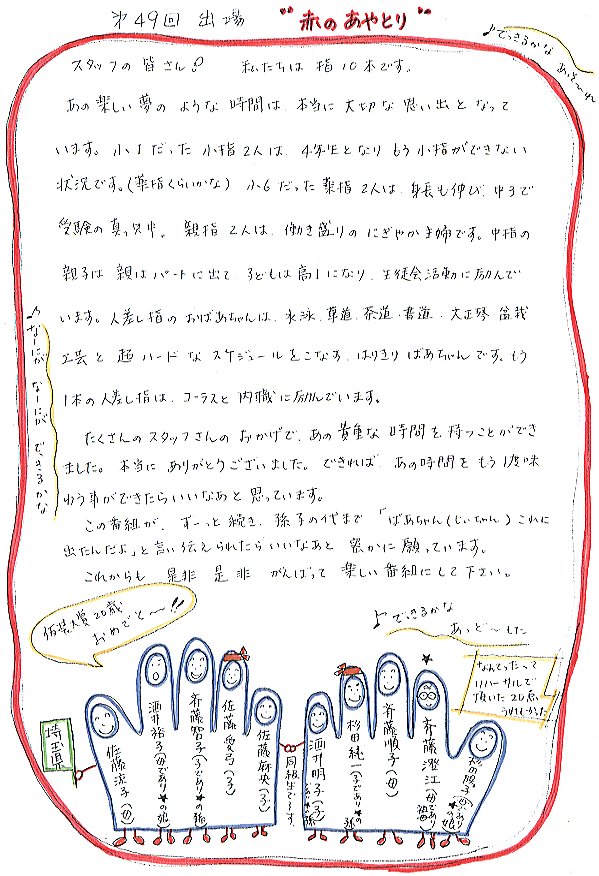 第49回 出場 "赤のあやとり"
♪できるかな あっそ〜れ
スタッフの皆さん! 私たちは 指10本です。
あの楽しい夢の ような 時間は、本当に 大切な 思い出と なって
います。小1だった 小指2人は、4年生となり もう小指ができない
状況です。(薬指くらいかな) 小6だった 薬指2人は、身長も伸び、中3で
受験の真っ只中。 親指 2人は、働き盛りの にぎやか主婦です。中指の
親子は 親はパートに出て 子どもは高1になり、生徒会活動に励んで
います。人差し指の おばあちゃんは、水泳、華道、茶道、書道、大正琴、盆栽
工芸と 超ハードな スケジュールをこなす、はりきりばあちゃんです。もう
1本の人差し指は、コーラスと 内職に励んでいます。
たくさんのスタッフさんの おかげで、あの貴重な 時間を 持つことができ
ました。本当に ありがとうございました。できれば、あの時間を もう1度味
わう事ができたらいいなあと 思っています。
この番組が、ずーっと続き、孫子の代まで「ばあちゃん(じいちゃん)これに
出たんだよ」と言い伝えられたらいいなあと 密かに 願っています。
これからも 是非 是非 がんばって 楽しい番組にして下さい。
♪なーにが なーにが できるかな
仮装大賞20歳
おめでと〜!!
♪できるかな
あっど〜した
なんてったって
リハーサルで
頂いた20点
うれしかった
埼玉県
佐藤
子(母)
酒井裕子(母であり★の娘)
斉藤智子(子であり★の孫)
佐藤愛弓(子)
佐藤麻央(子)
同級生です。
酒井明子(子であり★の孫)
杉田純一(子であり★の孫)
斉藤順子(母)
★
斉藤澄江(母であり祖母)
杉田
子(母であり★の娘)